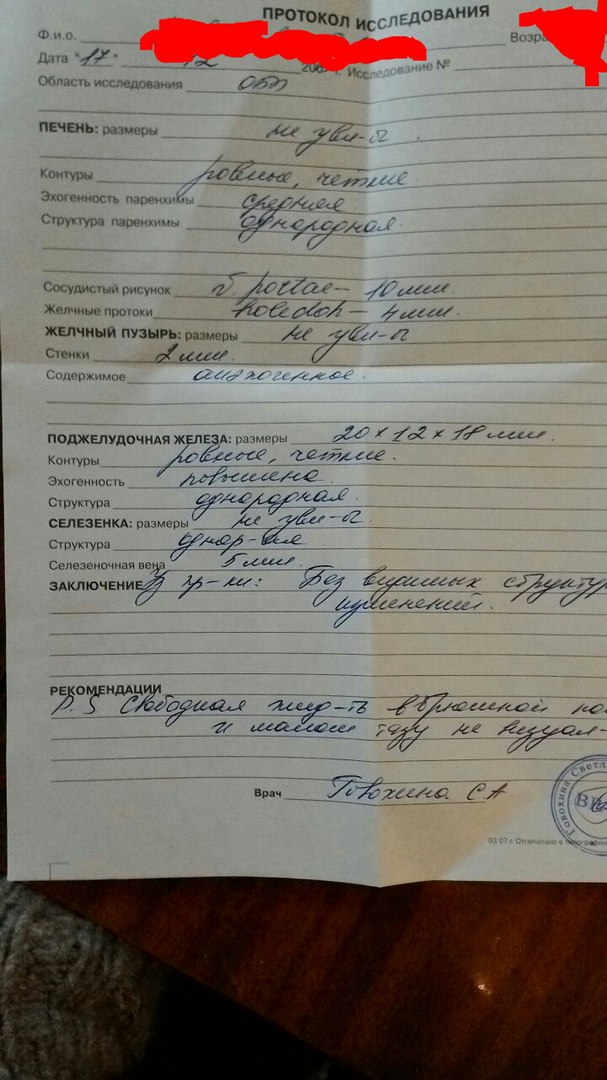 ПРОТОКОЛ ИССЛЕДОВАНИЯ
Ф.и.о. Возра
Дата "17" 12 200 г. Исследование №
Область исследования ОБП
ПЕЧЕНЬ: размеры не увл-ы
Контуры ровные, четкие
Эхогенность паренхимы средняя
Структура паренхимы однородная.
Сосудистый рисунок v. portae - 10 мм.
Желчные протоки holedoh - 4 мм.
ЖЕЛЧНЫЙ ПУЗЫРЬ: размеры не увл-ы
Стенки 2 мм.
Содержимое анэхогенное.
ПОДЖЕЛУДОЧНАЯ ЖЕЛЕЗА: размеры 20 x 12 x 18 мм.
Контуры ровные, четкие.
Эхогенность повышена
Структура однородная.
СЕЛЕЗЕНКА: размеры не увл-ы
Структура однор-ая
Селезеночная вена 5 мм.
ЗАКЛЮЧЕНИЕ Уз пр-ки: Без видимых структур
изменений.
РЕКОМЕНДАЦИИ
P.S Свободная жид-ть в брюшной по
и малом тазу не визуал-
Врач Говохина С А
Говохина Светл
03.07 г. Отпечатано в типографи